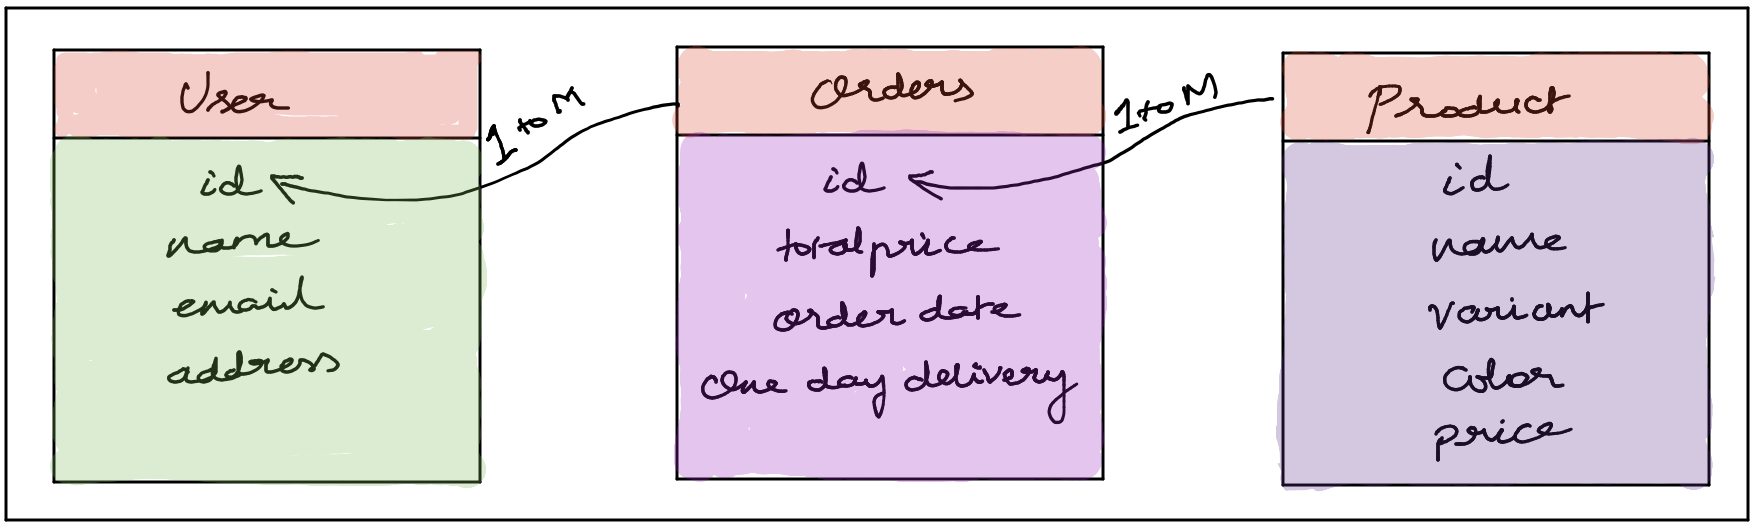 User
id
name
email
address
1 to M
Orders
id
total price
order date
one day delivery
1 to M
Product
id
name
variant
color
price